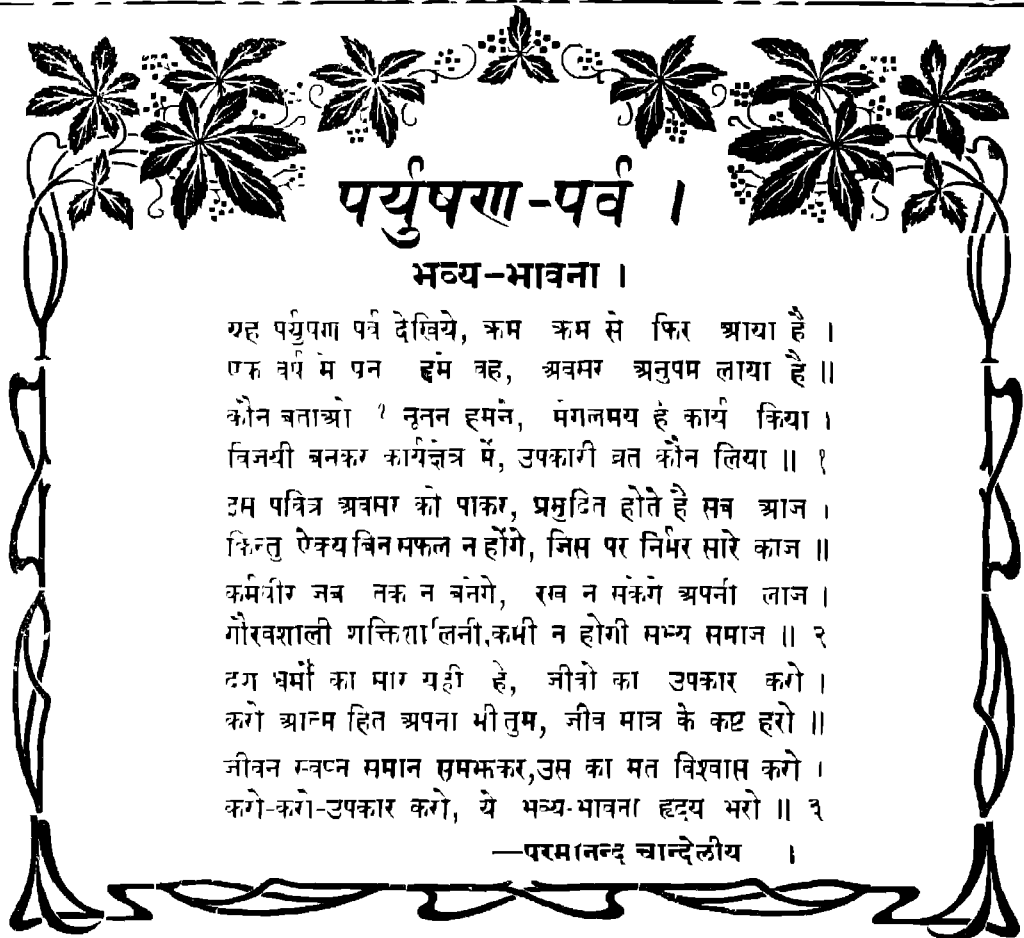 पर्युषण-पर्व ।
भव्य-भावना ।
यह पर्युषण पर्व देखिये, क्रम क्रम से फिर आया है ।
एक वर्ष मे पुन हमे वह, अवसर अनुपम लाया है ॥
कौन बताओ ? नूतन हमने, मंगलमय है कार्य किया ।
विजयी बनकर कार्यक्षेत्र में, उपकारी व्रत कौन लिया ॥ १
इस पवित्र अवसर को पाकर, प्रमुदित होते है सब आज ।
किन्तु ऐक्य बिन सफल न होंगे, जिस पर निर्भर सारे काज ॥
कर्मवीर जब तक न बनेगे, रख न सकेगे अपनी लाज ।
गौरवशाली शक्तिशालिनी, कभी न होगी सभ्य समाज ॥ २
दश धर्मों का सार यही है, जीवो का उपकार करो ।
करो आत्म हित अपना भी तुम, जीव मात्र के कष्ट हरो ॥
जीवन स्वप्न समान समझकर, उस का मत विश्वास करो ।
करो-करो-उपकार करो, ये भव्य-भावना हृदय भरो ॥ ३
—परमानन्द चान्देलीय ।